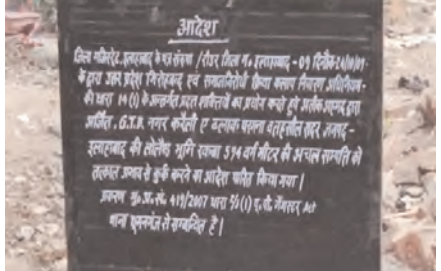 आदेश
जिला मजिस्ट्रेट, इलाहाबाद के पत्र संख्या /रीडर जिला म. इलाहाबाद - 09 दिनाँक 24/10/07
के द्वारा उत्तर प्रदेश गिरोहबन्द एवं समाजविरोधी क्रिया कलाप निवारण अधिनियम -
की धारा 14 (1) के अन्तर्गत प्रदत्त शक्तियों का प्रयोग करते हुये अतीक अहमद द्वारा
अर्जित, G.T.B. नगर करेली ए ब्लाक परगना व तहसील सदर जनपद -
इलाहाबाद की भूमि रकबा 594 वर्ग मीटर की अचल सम्पत्ति को
तत्काल प्रभाव से कुर्क करने का आदेश पारित किया गया।
प्रकरण मु.अ.सं. 419/2007 धारा 3(1) यू.पी. गैंगस्टर Act
थाना से सम्बन्धित है।